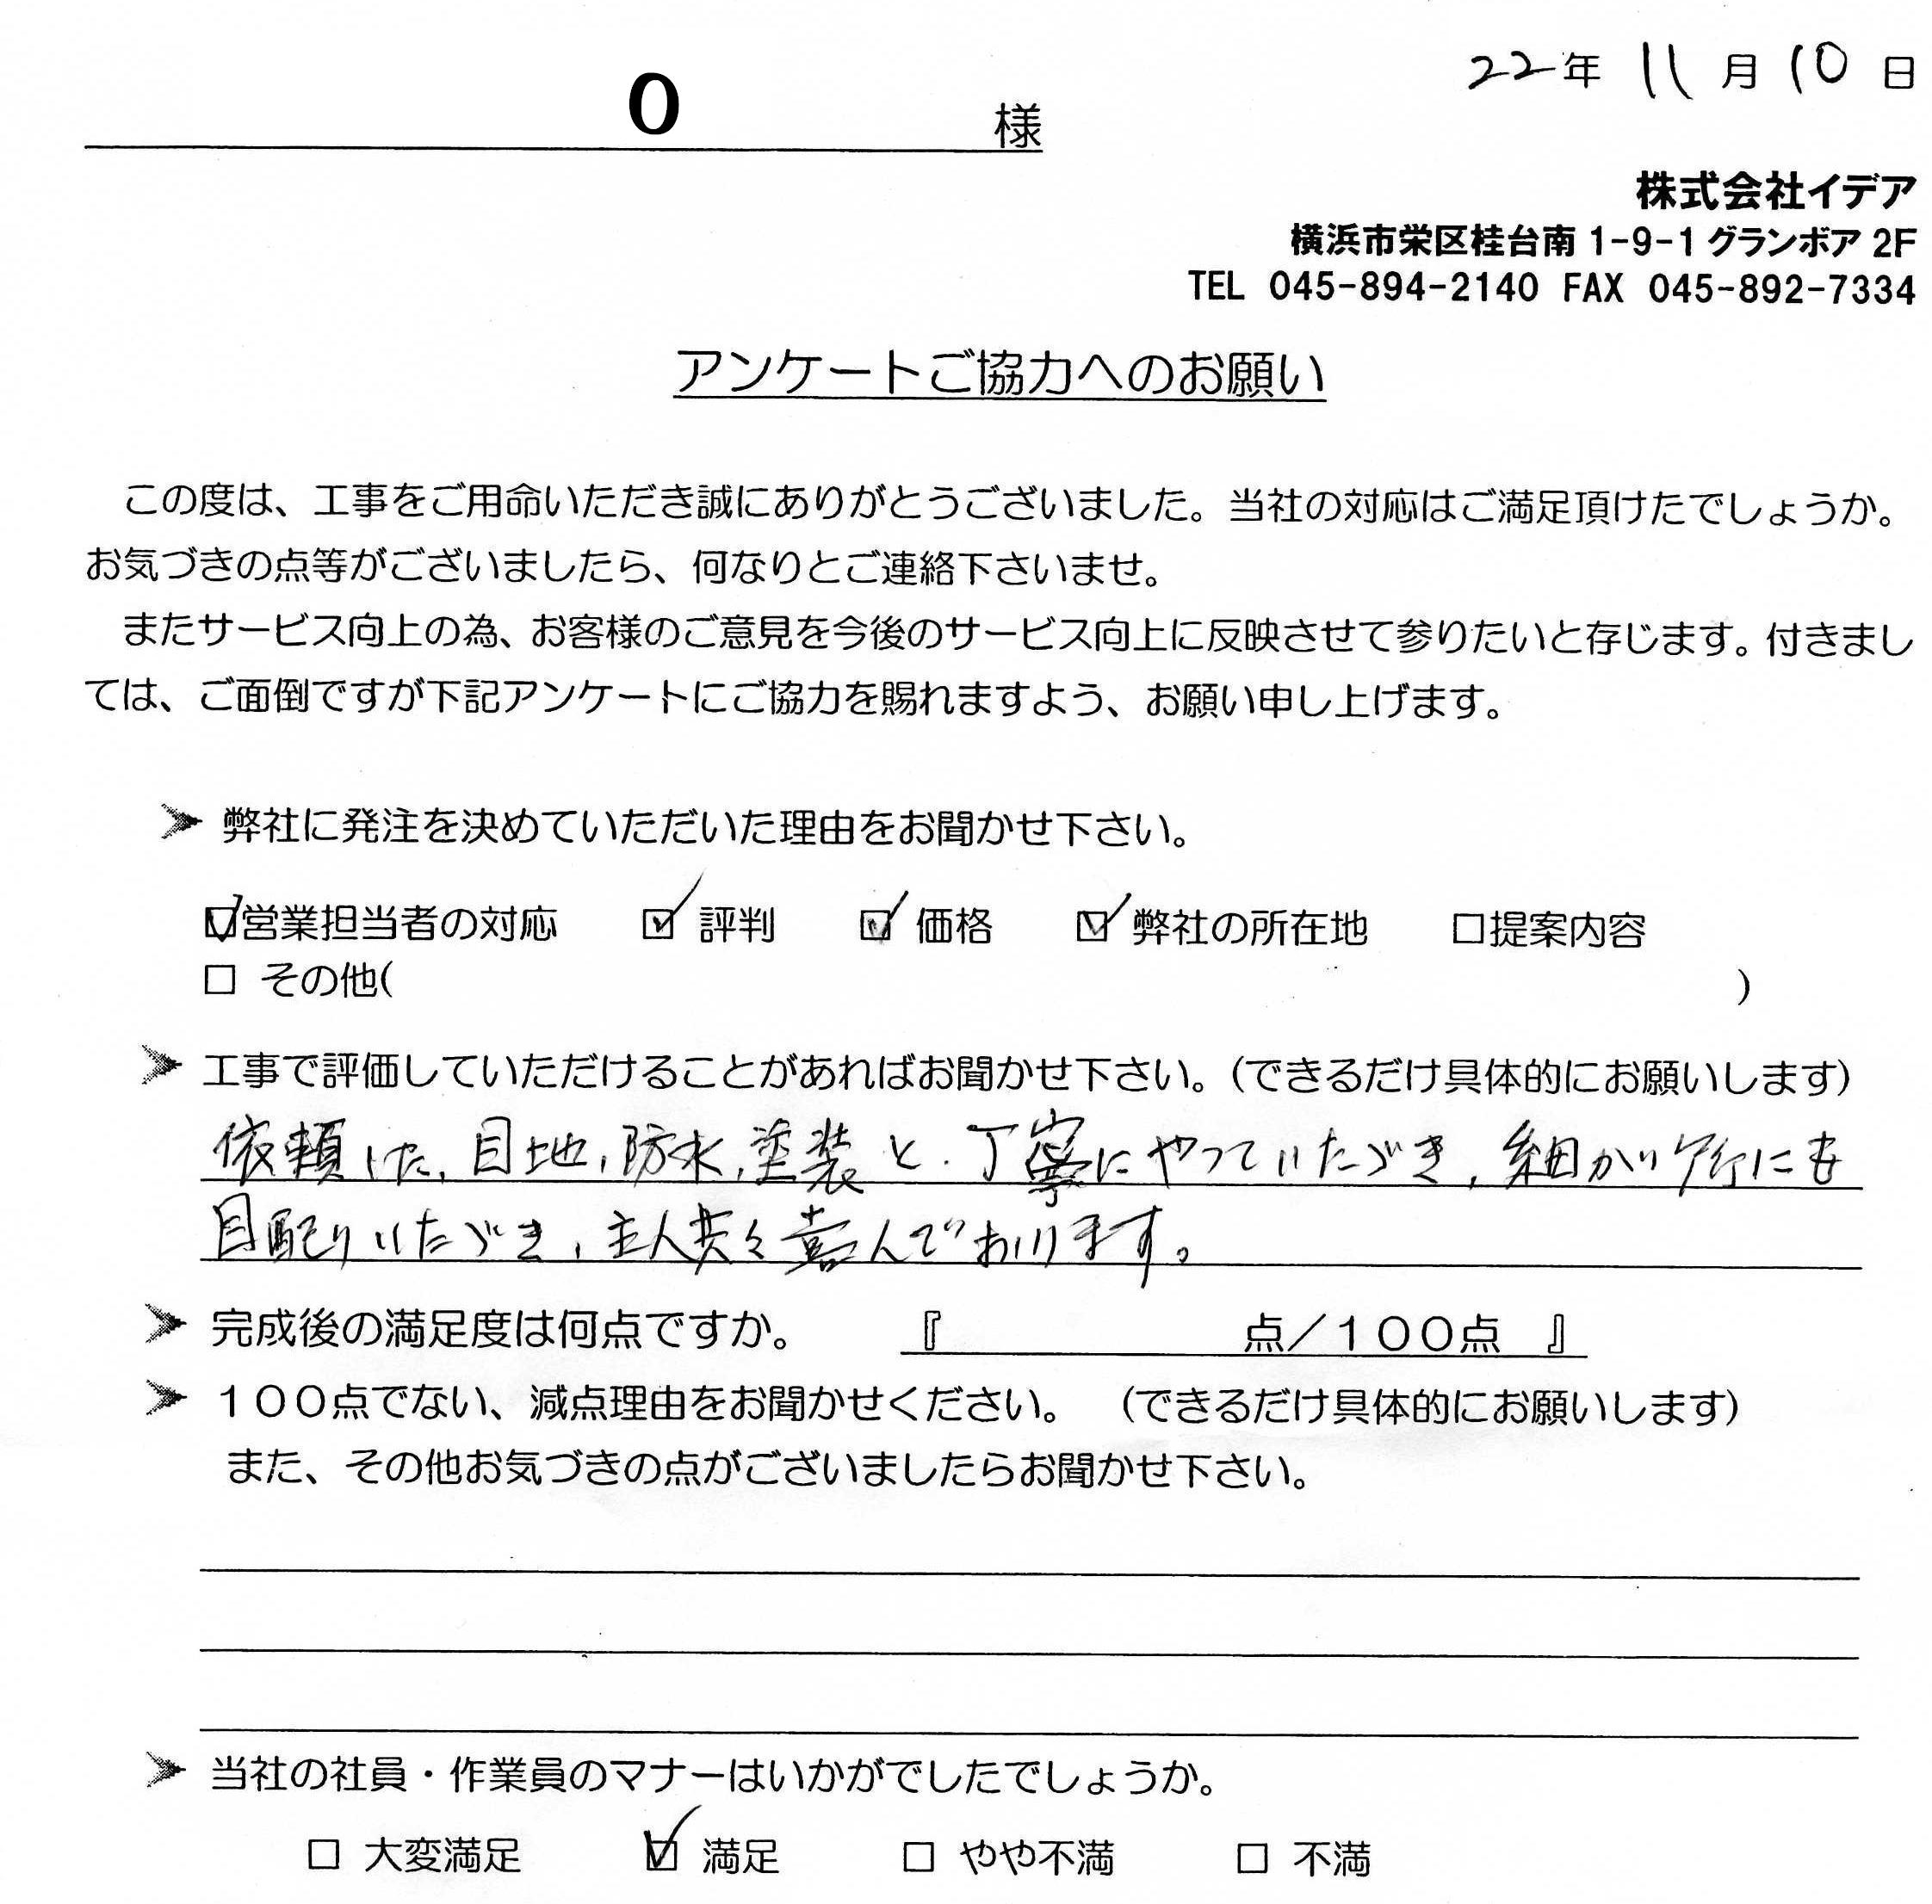 22年 11月10日
O 様
株式会社イデア
横浜市栄区桂台南1-9-1グランボア2F
TEL 045-894-2140 FAX 045-892-7334
アンケートご協力へのお願い
この度は、工事をご用命いただき誠にありがとうございました。当社の対応はご満足頂けたでしょうか。
お気づきの点等がございましたら、何なりとご連絡下さいませ。
またサービス向上の為、お客様のご意見を今後のサービス向上に反映させて参りたいと存じます。付きまし
ては、ご面倒ですが下記アンケートにご協力を賜れますよう、お願い申し上げます。
➤ 弊社に発注を決めていただいた理由をお聞かせ下さい。
☑営業担当者の対応 ☑ 評判 ☑ 価格 ☑ 弊社の所在地 □提案内容
□ その他( )
➤ 工事で評価していただけることがあればお聞かせ下さい。(できるだけ具体的にお願いします)
依頼した、目地、防水、塗装と、丁寧にやっていたゞき、細かい所にも
目配りいたゞき、主人共々喜んでおります。
➤ 完成後の満足度は何点ですか。 『 点/100点 』
➤ 100点でない、減点理由をお聞かせください。 (できるだけ具体的にお願いします)
また、その他お気づきの点がございましたらお聞かせ下さい。
➤ 当社の社員・作業員のマナーはいかがでしたでしょうか。
□ 大変満足 ☑ 満足 □ やや不満 □ 不満